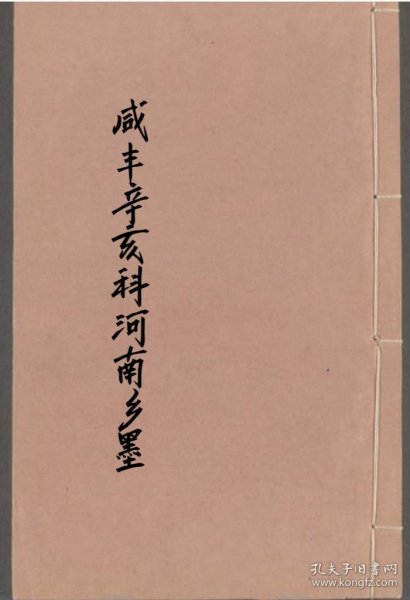 咸丰辛亥科河南乡墨
孔夫子旧书网
www.kongfz.com